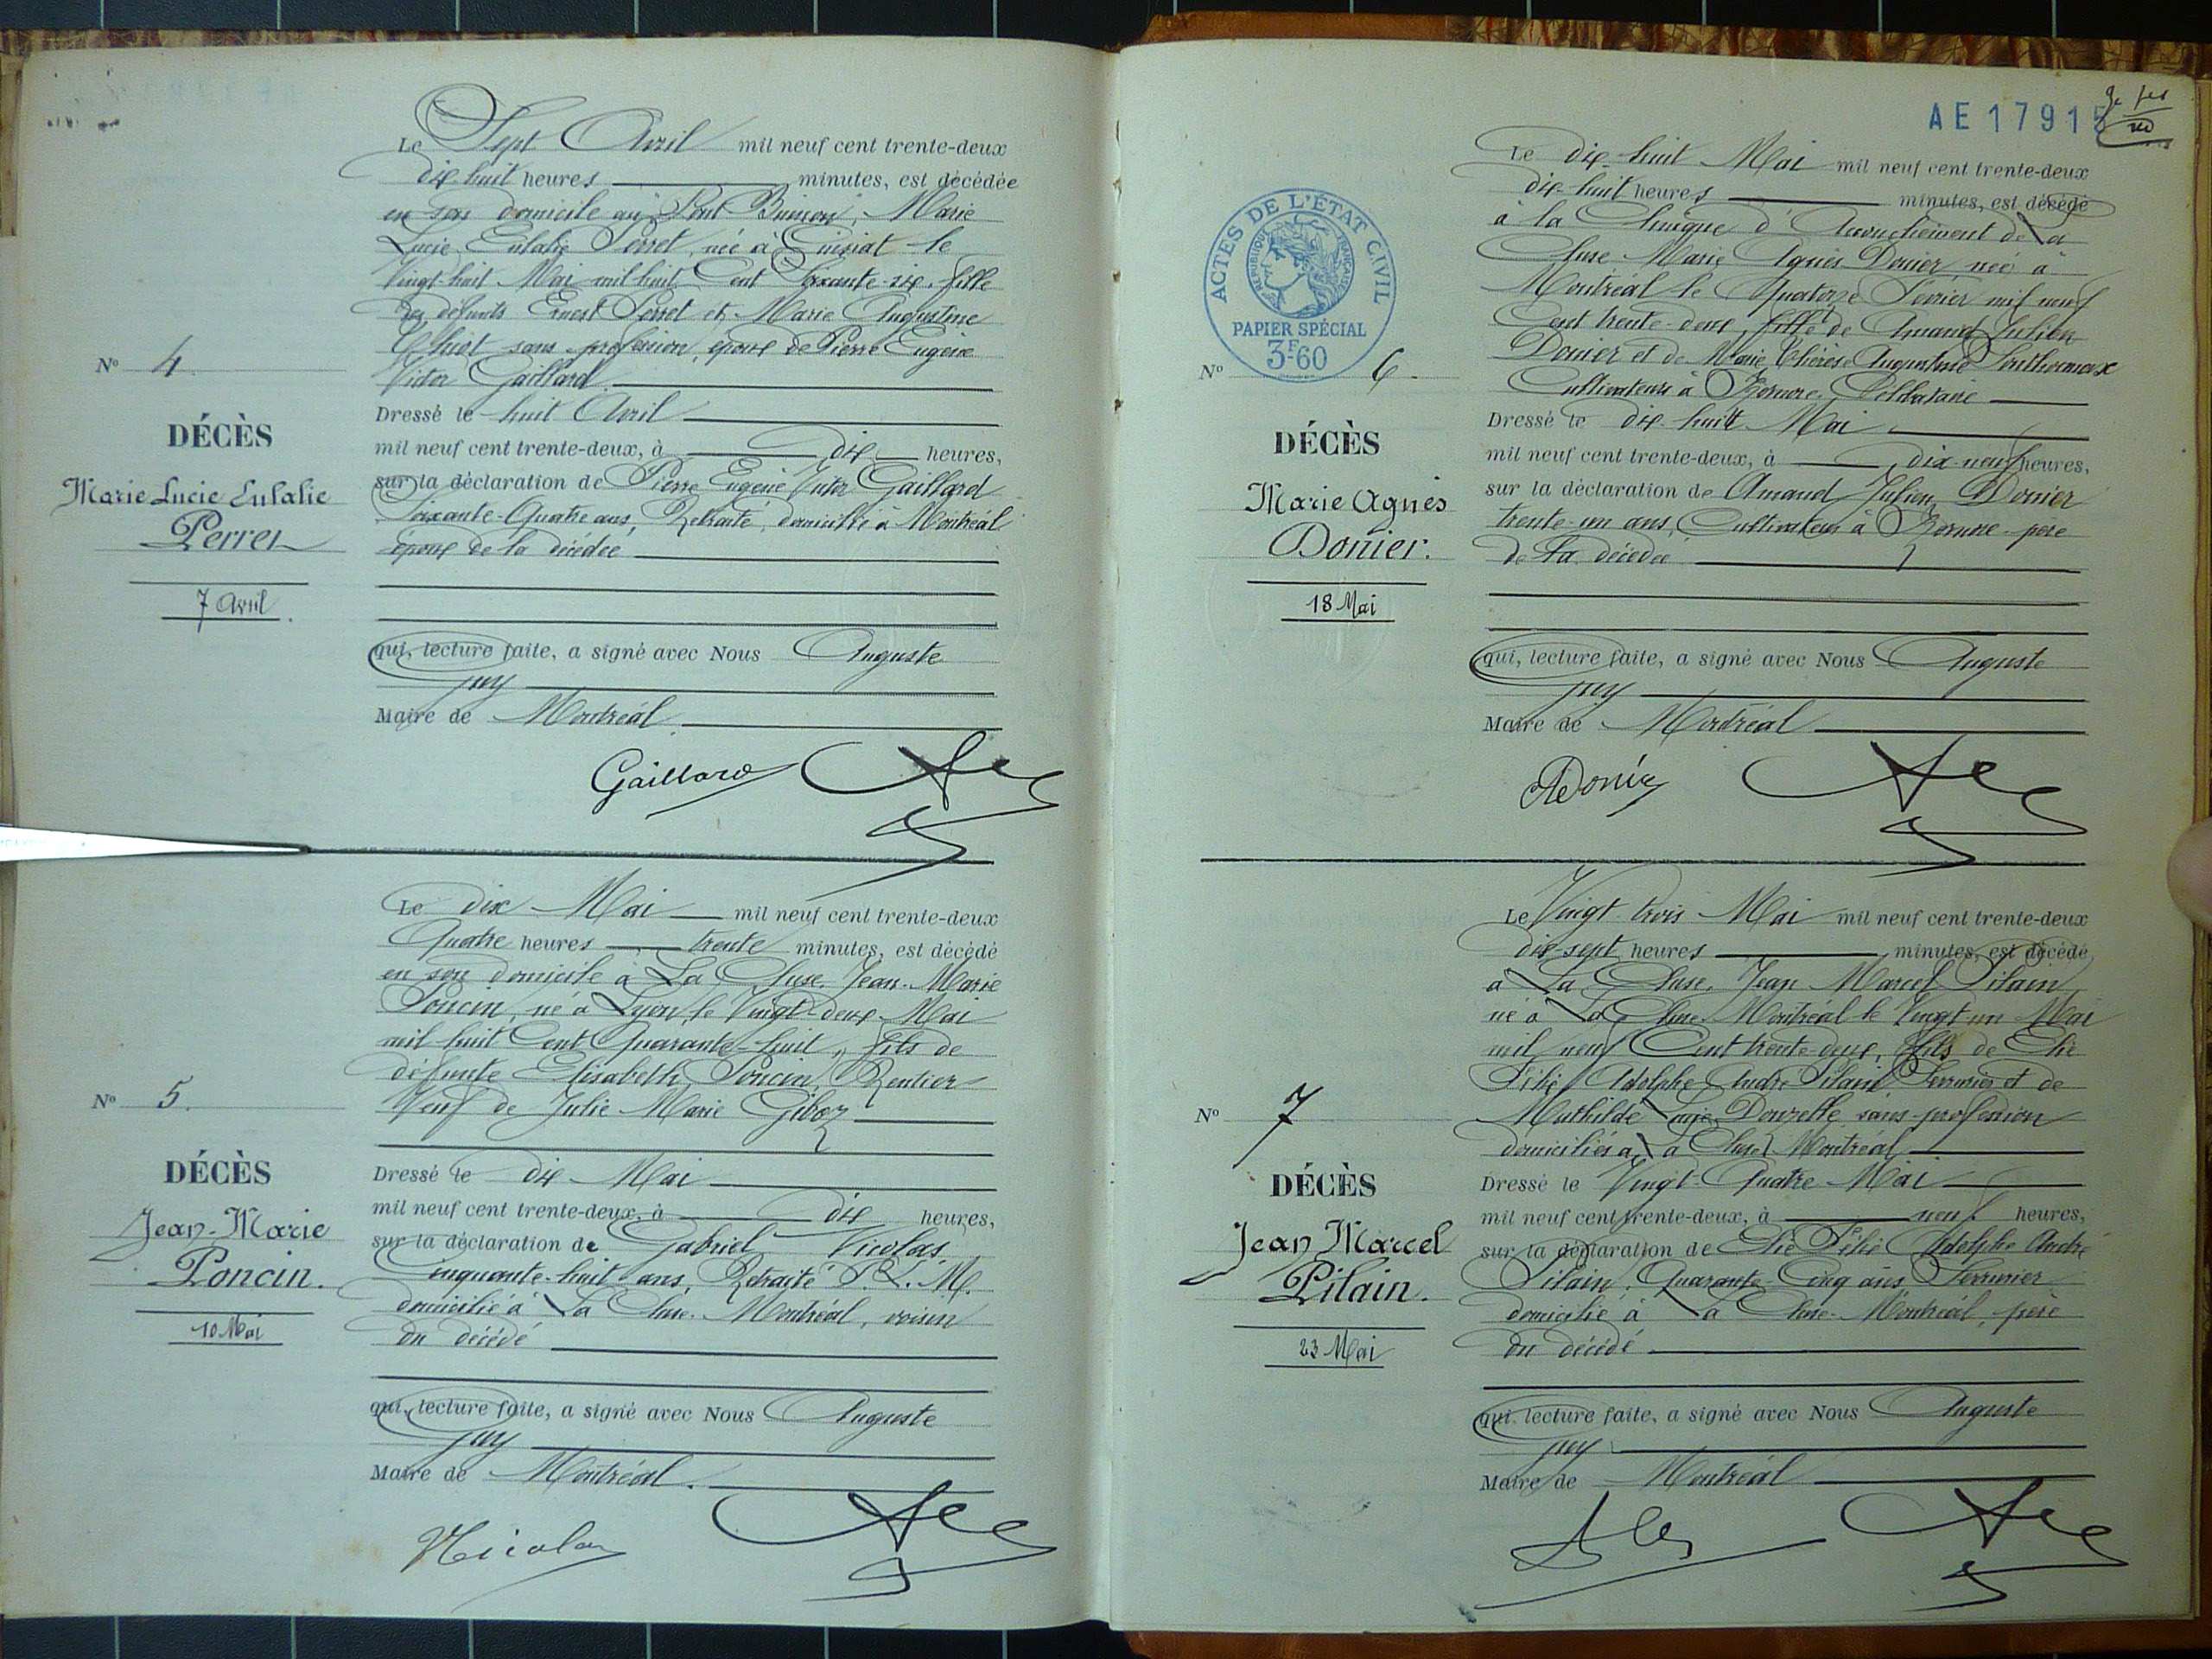 Le Sept Avril mil neuf cent trente-deux
dix-huit heures minutes, est décédée
en son domicile au Pont Marie
Lucie Eulalie Perret, née à Cuisiat le
Vingt-huit Mai mil huit Cent Soixante-six, fille
des défunts Ernest Perret et Marie Augustine
sans profession, épouse de Pierre Eugène
Victor Gaillard
Nº 4
DÉCÈS
Marie Lucie Eulalie
Perret
7 Avril.
Dressé le huit Avril
mil neuf cent trente-deux, à dix heures,
sur la déclaration de Pierre Eugène Victor Gaillard
Soixante-Quatre ans, Retraité, domicilié à Montréal
époux de la décédée
qui, lecture faite, a signé avec Nous Auguste
Maire de Montréal.
Gaillard
Le dix Mai mil neuf cent trente-deux
Quatre heures trente minutes, est décédé
en son domicile à La Cluse, Jean-Marie
Poncin, né à Lyon, le Vingt-deux Mai
mil huit Cent Quarante-huit, fils de
défunte Elisabeth Poncin, Rentier
Veuf de Julie Marie Giboz
Nº 5.
DÉCÈS
Jean-Marie
Poncin.
10 Mai
Dressé le dix Mai
mil neuf cent trente-deux, à dix heures,
sur la déclaration de Gabriel Nicolas
Cinquante-huit ans, Retraité P.L.M.
domicilié à La Cluse-Montréal, voisin
du décédé
qui, lecture faite, a signé avec Nous Auguste
Maire de Montréal.
Nicolas
AE 17915
ACTES DE L'ÉTAT CIVIL
RÉPUBLIQUE FRANÇAISE
PAPIER SPÉCIAL
3F60
Le dix-huit Mai mil neuf cent trente-deux
dix-huit heures minutes, est décédé
à la Clinique d'Accouchement de La
Cluse Marie Agnès Donier, née à
Montréal le Quatorze Février mil neuf
Cent trente-deux, fille de Amand Julien
Donier et de Marie Thérèse Augustine
Cultivateurs à Célibataire
Nº 6.
DÉCÈS
Marie Agnès
Donier.
18 Mai
Dressé le dix-huit Mai
mil neuf cent trente-deux, à dix-neuf heures,
sur la déclaration de Amand Julien Donier
trente-un ans, Cultivateur à père
de la décédée
qui, lecture faite, a signé avec Nous Auguste
Maire de Montréal
ADonier
Le Vingt-trois Mai mil neuf cent trente-deux
dix-sept heures minutes, est décédé
à La Cluse, Jean Marcel Pilain
né à La Cluse-Montréal le Vingt-un Mai
mil neuf Cent trente-deux, fils de Elie
Félix Adolphe André Pilain Serrurier et de
Mathilde Douzelle, sans profession
domiciliés à La Cluse-Montréal
Nº 7
DÉCÈS
Jean Marcel
Pilain.
23 Mai
Dressé le Vingt-Quatre Mai
mil neuf cent trente-deux, à neuf heures,
sur la déclaration de Elie Félix Adolphe André
Pilain, Quarante-Cinq ans, Serrurier
domicilié à La Cluse-Montréal, père
du décédé
qui, lecture faite, a signé avec Nous Auguste
Maire de Montréal